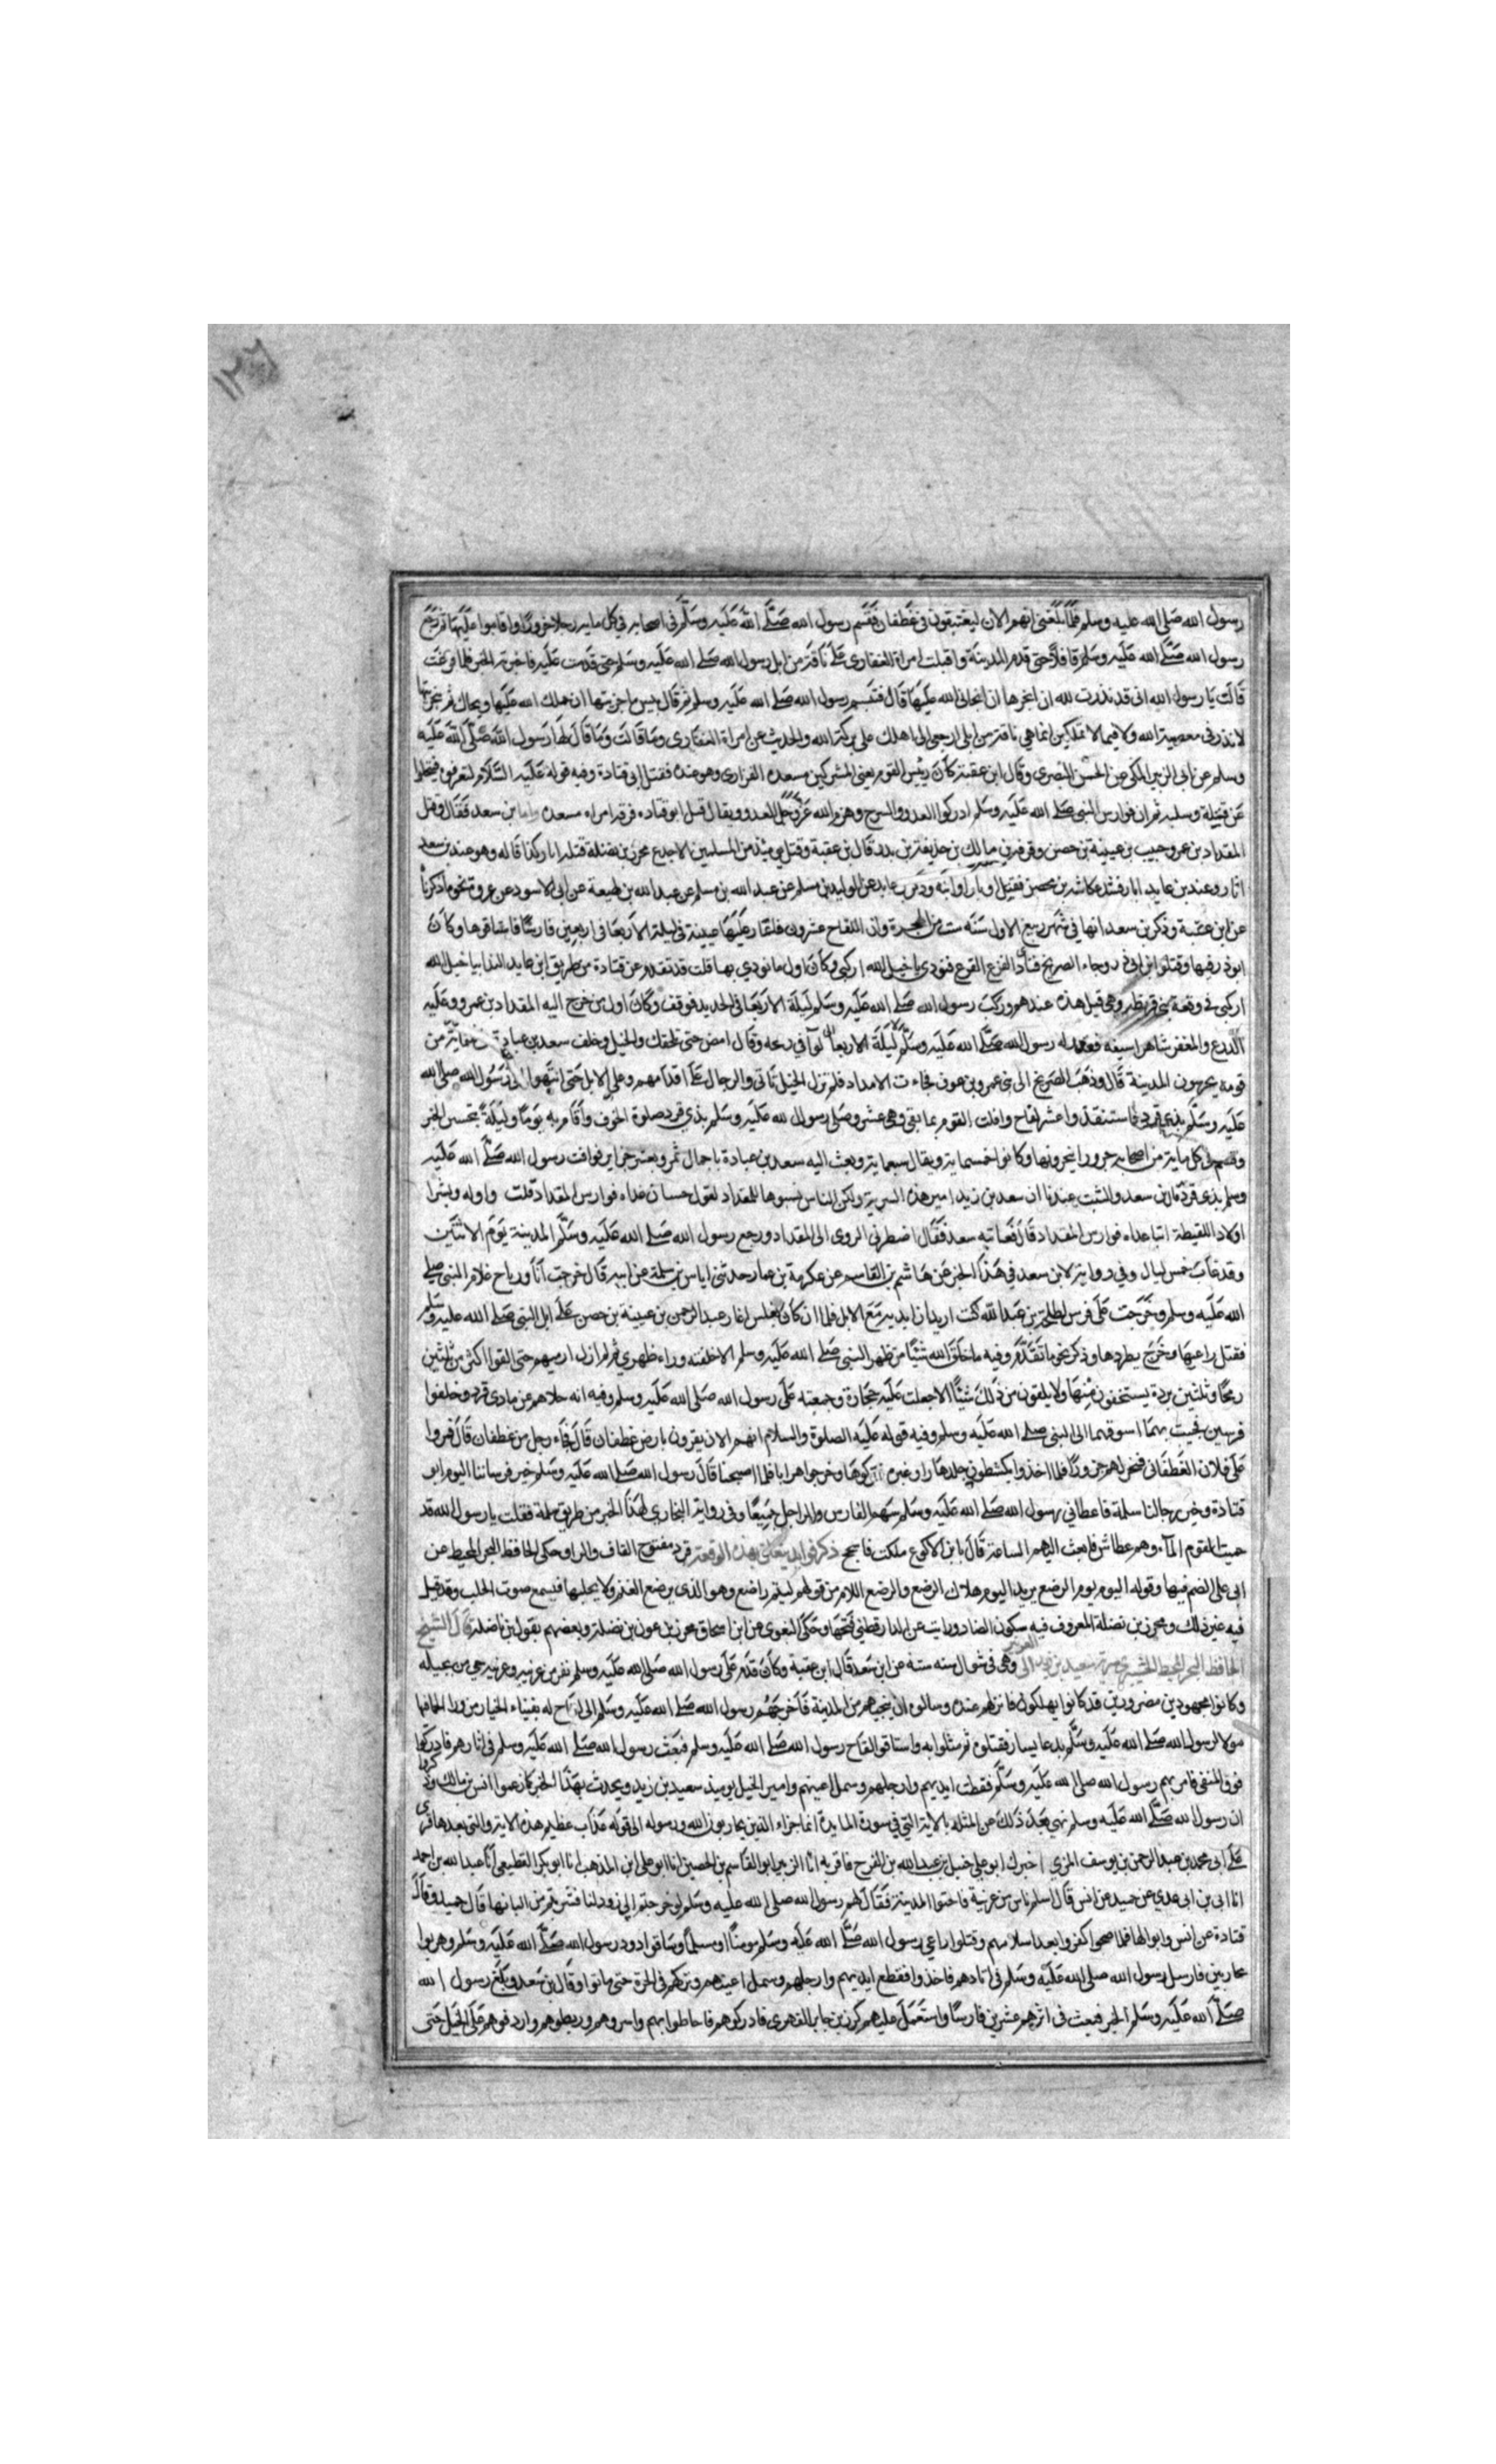 رسول الله صلى الله عليه وسلم فلما بلغنى انهم الان ليغتبقون فى غطفان فقسم رسول الله صلى الله عليه وسلم فى اصحابه فى كل مايه رجل جزورا واقاموا عليها ثم رجع
رسول الله صلى الله عليه وسلم قافلا حتى قدم المدينة واقبلت امراة الغفارى على ناقة من ابل رسول الله صلى الله عليه وسلم حتى قدمت عليه فاخبرته الخبر فلما فرغت
قالت يا رسول الله انى قد نذرت لله ان انحرها ان نجانى الله عليها قال فتبسم رسول الله صلى الله عليه وسلم ثم قال بيس ما جزيتها ان حملك الله عليها ونجاك ثم تنحرينها
لا نذر فى معصية الله ولا فيما لا تملكين انما هى ناقة من ابلى ارجعى الى اهلك على بركة الله والحديث عن امراة الغفارى وما قالت وما قال لها رسول الله صلى الله عليه
وسلم عن ابى الزبير المكى عن الحسن البصرى وقال ابن عقبة كان رييس القوم يعنى المشركين مسعده الفزارى وهو عنده فقتل ابى قتادة وفيه قوله عليه السلام لتعرفوه فتخلوا
عن قتيله وسلبه ثم ان فوارس النبى صلى الله عليه وسلم ادركوا العدو والسرح وهزم الله عز وجل العدو ويقال قتل ابو قتاده قرفة امراه مسعده واما بن سعد فقال وقتل
المقداد بن عمرو حبيب بن عيينة بن حصن وقرفة بن مالك بن حذيفة بن بدر قال بن عقبة وقتل يوميذ من المسلمين الاجدع محرز بن نضلة قتله ابار كذا قاله وهو عند بن سعد
اثار وعند بن عايد ابار فشد عكاشة بن محصن فقتل اوبار وابنه عايد عن الوليد بن مسلم عن عبد الله بن لهيعة عن ابى الاسود عن عروة نحو ما ذكرنا
عن ابن عقبة وذكر بن سعد انها فى شهر ربيع الاول سنه ست من الهجرة وان اللقاح عشرون فاغار عليها عيينة فى ليلة الاربعا فى اربعين فارسا فاستاقوها وكان
ابو ذر فيها وقتلوا ابن ابى ذر وجاء الصريخ فنادى الفزع الفزع فنودى يا خيل الله اركبى وكان اول ما نودى بها قلت قد تقدم عن قتادة من طريق ابن عايد الندا بيا خيل الله
اركبى فى وقعة بنى قريظه وهى قبل هذه عندهم وركب رسول الله صلى الله عليه وسلم ليلة الاربعا فى الحديد فوقف وكان اول من خرج اليه المقداد بن عمرو وعليه
الدرع والمغفر شاهرا سيفه فعقد له رسول الله صلى الله عليه وسلم ليلة الاربعا لوآ فى رمحه وقال امض حتى تلحقك والخيل وخلف سعد بن عباده ثلثماية من
قومه يحرسون المدينة قال وذهب الصريخ الى بنى عمرو بن عوف فجاءت الامداد فلم تزل الخيل تاتى والرجال على اقدامهم وعلى الابل حتى انتهوا الى رسول الله صلى الله
عليه وسلم بذى قرد فاستنقذوا عشر لقاح وافلت القوم بما بقى وهى عشر وصلى رسول الله صلى عليه وسلم بذى قرد صلوة الخوف واقام به يوما وليلة يتحسس الخبر
وقسم فى كل ماية من اصحابه جزورا ينحرونها وكانوا خمسماية ويقال سبعماية وبعث اليه سعد بن عبادة باحمال تمر وبعشر جزاير فوافت رسول الله صلى الله عليه
وسلم بذى قرد قال بن سعد والثبت عندنا ان سعد بن زيد امير هذه السرية ولكن الناس نسبوها للمقداد لقول حسان غداه فوارس المقداد قلت واوله وبشرا
اولاد اللقيطة انبا غداه فوارس المقداد قال فعاتبه سعد فقال اضطرنى الروى الى المقداد ورجع رسول الله صلى الله عليه وسلم المدينة يوم الاثنين
وقد غاب خمس ليال وفى رواية لابن سعد فى هذا الخبر عن هاشم بن القاسم عن عكرمة بن عمار حدثنى اياس بن سلمة عن ابيه قال خرجت انا ورباح غلام النبى صلى
الله عليه وسلم وخرجت على فرس لطلحة بن عبد الله كنت اريد ان ابديه مع الابل فلما ان كان بغلس اغار عبد الرحمن بن عيينة بن حصن على ابل النبى صلى الله عليه وسلم
فقتل راعيها وخرج يطردها وذكر نحو ما تقدم وفيه ما خلق الله شيئا من ظهر النبى صلى الله عليه وسلم الا خلفته وراء ظهرى ثم لم ازل ارميهم حتى القوا اكثر من ثلثين
رمحا وثلثين بردة يستخفون منها ولا يلقون من ذلك شيئا الا جعلت عليه حجارة وجمعته على رسول الله صلى الله عليه وسلم وفيه انه حلاهم عن ما ذى قرد وخلفوا
فرسين فجيت بهما اسوقهما الى النبى صلى الله عليه وسلم وفيه قوله عليه الصلوة والسلام انهم الان يقرون بارض غطفان قال فجاء رجل من غطفان قال مروا
على فلان الغطفانى فنحر لهم جزورا فلما اخذوا يكشطون جلدها راوا غبرة تركوها وخرجوا هرابا فلما اصبحنا قال رسول الله صلى الله عليه وسلم خير فرساننا اليوم ابو
قتادة وخير رجالنا سلمة فاعطانى رسول الله صلى الله عليه وسلم سهم الفارس والراجل جميعا وفى رواية البخارى لهذا الخبر من طريق سلمة فقلت يا رسول الله قد
حميت القوم المآء وهم عطاش فابعث اليهم الساعة قال يا بن الاكوع ملكت فاسجح ذكر فوايد تتعلق بهذه الوقعة قرد مفتوح القاف والراء وحكى الحافظ البحر المحيط عن
ابى على الضم فيها وقوله اليوم يوم الرضع يريد اليوم هلاك الرضع والرضع اللئام من قولهم لييم راضع وهو الذى يرضع الغنم ولا يحلبها فيسمع صوت الحلب وقد قيل
فيه غير ذلك ومحرز بن نضلة المعروف فيه سكون الضاد ورايت عن الدارقطنى فتحها وحكى البغوى عن ابن اسحاق محرز بن عون بن نضلة وبعضهم يقول بن ناضلة قال الشيخ
الحافظ البحر المحيط سرية سعيد بن زيد الى العرنيين وهى فى شوال سنه ستة عن ابن سعد قال ابن عقبة وكان قدم على رسول الله صلى الله عليه وسلم نفر من عرينه وعرينه حى من بجيله
وكانوا مجهودين مضرورين قد كادوا يهلكون فانزلهم عنده وسالوه ان ينجيهم من المدينة فاخرجهم رسول الله صلى الله عليه وسلم الى لقاح له بفيفاء الخبار من ورا الحما فيها
مولا لرسول الله صلى الله عليه وسلم يدعا يسار فقتلوه ثم مثلوا به واستاقوا لقاح رسول الله صلى الله عليه وسلم فبعث رسول الله صلى الله عليه وسلم فى اثارهم فادركوا
فوق المنقى فامر بهم رسول الله صلى الله عليه وسلم فقطعت ايديهم وارجلهم وسمل اعينهم وامير الخيل يوميذ سعيد بن زيد ويحدث بهذا الخبر كما زعموا انس بن مالك وذكروا
ان رسول الله صلى الله عليه وسلم نهى بعد ذلك عن المثله بالاية التى فى سورة المايدة انما جزاء الذين يحاربون الله ورسوله الى قوله عذاب عظيم هذه الاية والتى بعدها قرى
على ابى محمد بن عبد الرحمن بن يوسف المزى اخبرك ابو على حنبل بن عبد الله بن الفرج فاقر به انا الرييس ابو القاسم بن الحصين انا ابو على ابن المذهب انا ابو بكر القطيعى انا عبد الله بن احمد
انا ابى بن ابى عدى عن حميد عن انس قال اسلم ناس من عرينة فاجتووا المدينة فقال لهم رسول الله صلى الله عليه وسلم لو خرجتم الى ذود لنا فشربتم من البانها قال حميد وقال
قتادة عن انس وابوالها فلما صحوا كفروا بعد اسلامهم وقتلوا راعى رسول الله صلى الله عليه وسلم مومنا او مسلما وساقوا ذود رسول الله صلى الله عليه وسلم وهربوا
محاربين فارسل رسول الله صلى الله عليه وسلم فى اثارهم فاخذوا فقطع ايديهم وارجلهم وسمل اعينهم وتركهم فى الحرة حتى ماتوا وقال بن سعد وبلغ رسول الله
صلى الله عليه وسلم الخبر فبعث فى اثرهم عشرين فارسا واستعمل عليهم كرز بن جابر الفهرى فادركوهم فاحاطوا بهم واسروهم وربطوهم واردفوهم على الخيل حتى